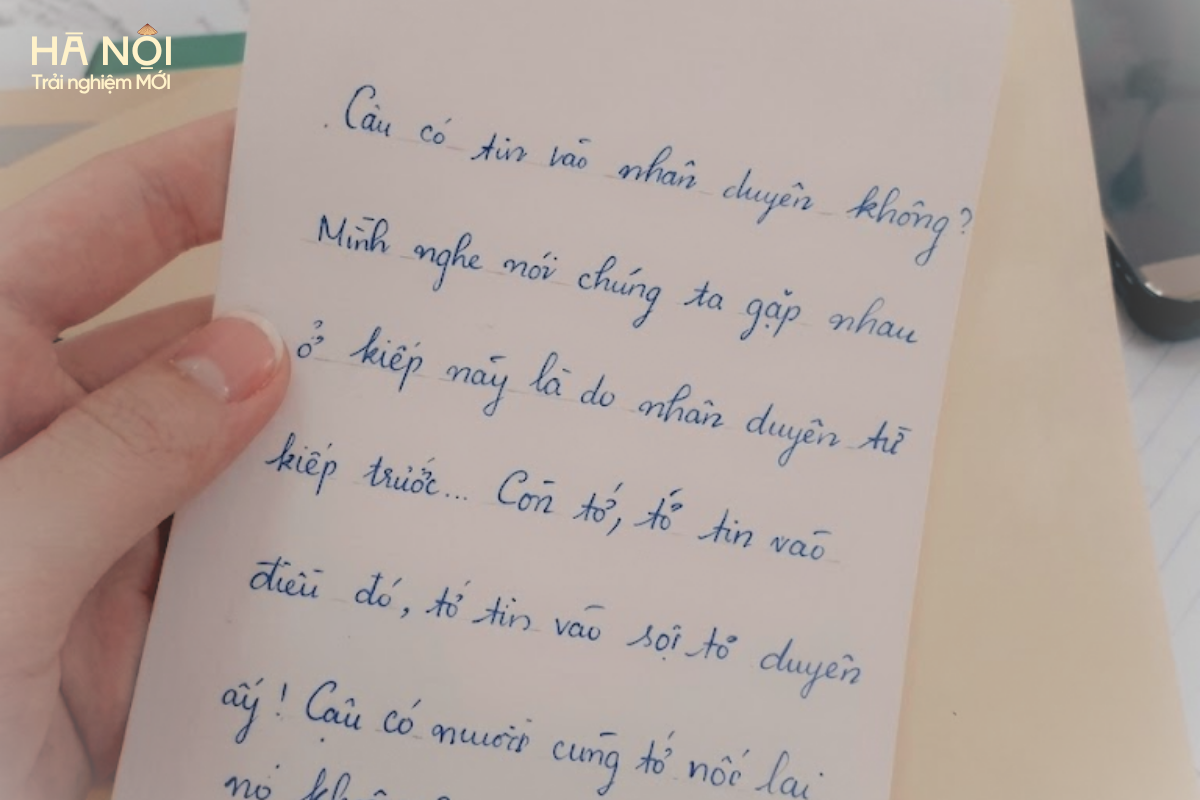 HÀ NỘI
Trải nghiệm MỚI
Cậu có tin vào nhân duyên không?
Mình nghe nói chúng ta gặp nhau
ở kiếp này là do nhân duyên từ
kiếp trước... Còn tớ, tớ tin vào
điều đó, tớ tin vào sợi tơ duyên
ấy! Cậu có muốn cùng tớ nối lại
nó